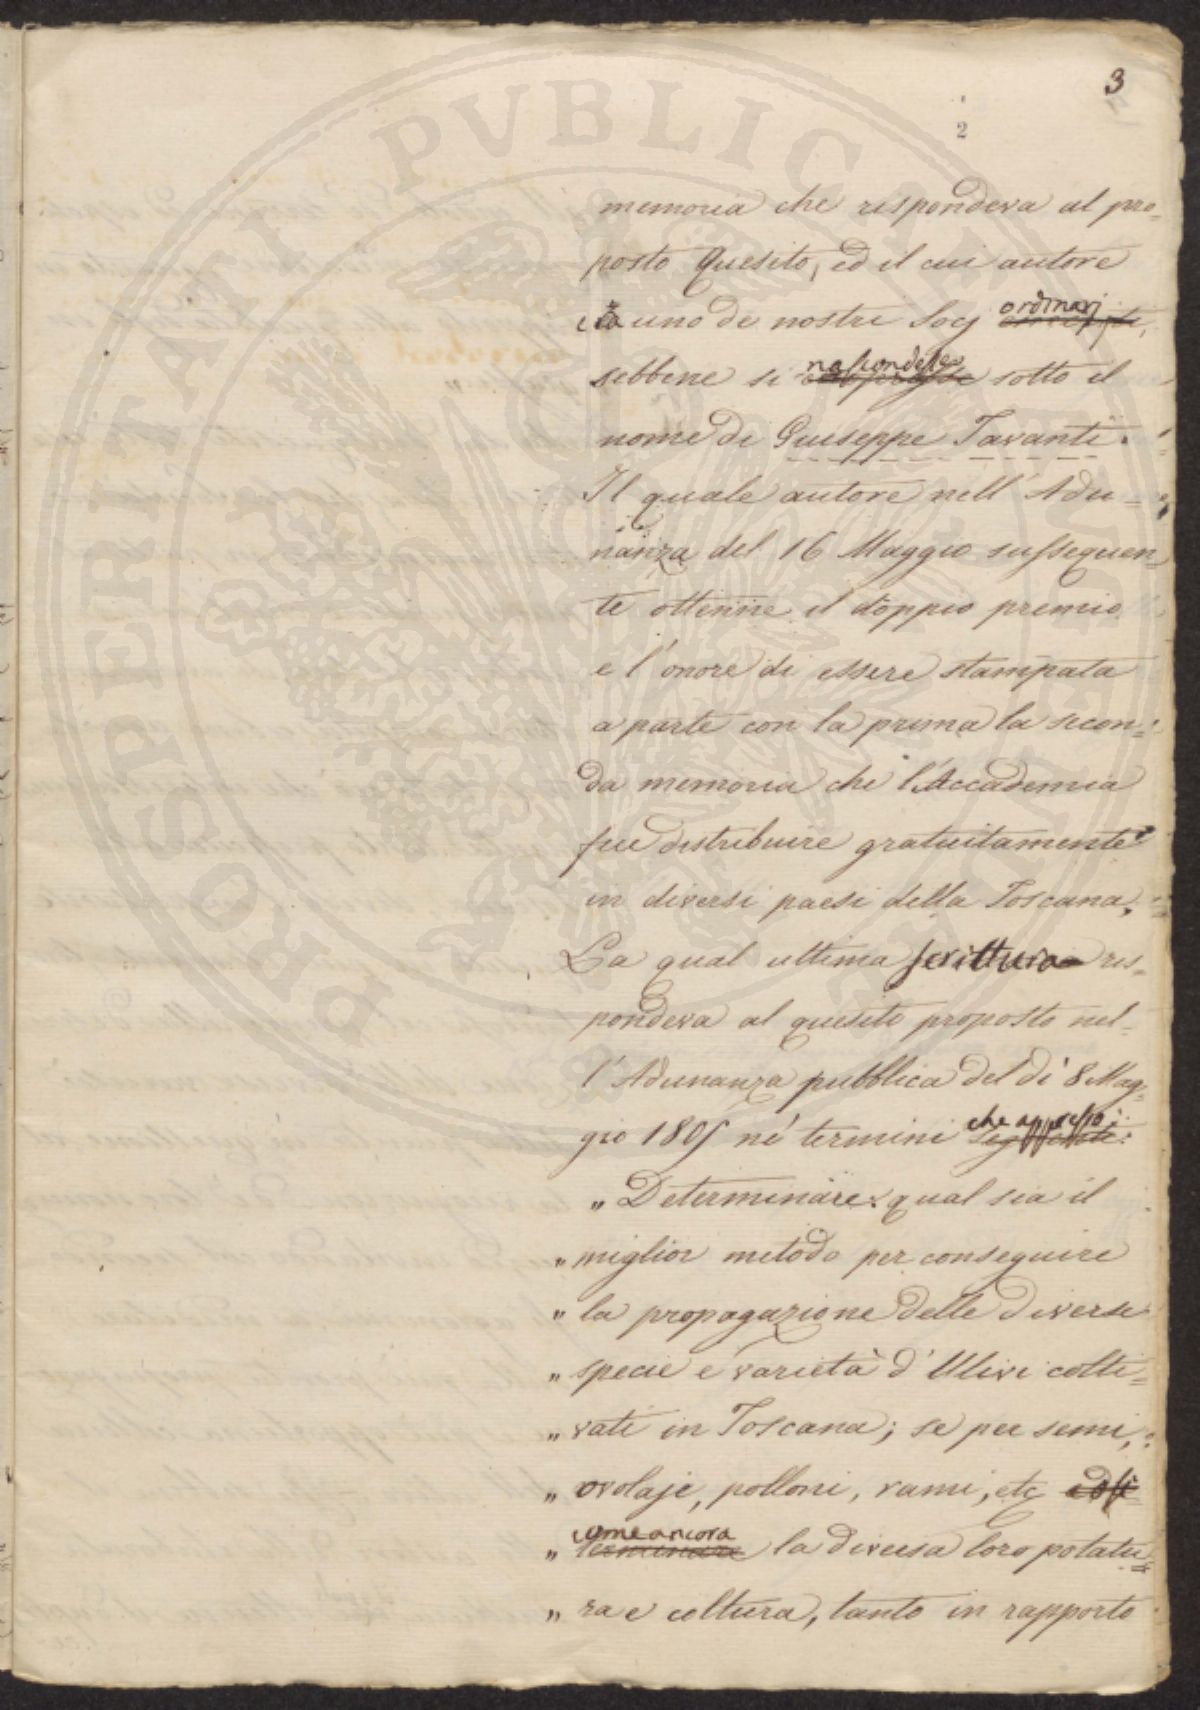 3
2
memoria che rispondeva al pro-
posto Quesito, ed il cui autore
era uno de nostri Socj ordinarj
sebbene si nascondesse sotto il
nome di Giuseppe Tavanti.
Il quale autore nell'Adu-
nanza del 16 Maggio susseguen-
te ottenne il doppio premio
e l'onore di essere stampata
a parte con la prima la secon-
da memoria che l'Accademia
fece distribuire gratuitamente
in diversi paesi della Toscana.
La qual ultima scrittura ris-
pondeva al quesito proposto nel-
l'Adunanza pubblica del dì 8 Mag-
gio 180 né termini che appresso:
„ Determinare: qual sia il
„ miglior metodo per conseguire
„ la propagazione delle diverse
„ specie e varietà d'Ulivi colti-
„ vati in Toscana; se per semi,
„ ovolaje, polloni, rami, etc
„ come ancora la diversa loro potatu-
„ ra e coltura, tanto in rapporto
PROSPERITATI PVBLICAE AVGENDAE